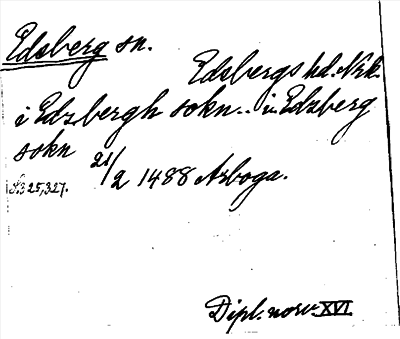 Edsberg sn.
Edsbergs hd. Nrk.
i Edzbergh sokn.. i Edzberg
sokn 21/2 1488 Arboga.
S: 25,327.
Dipl. norv. XVI.